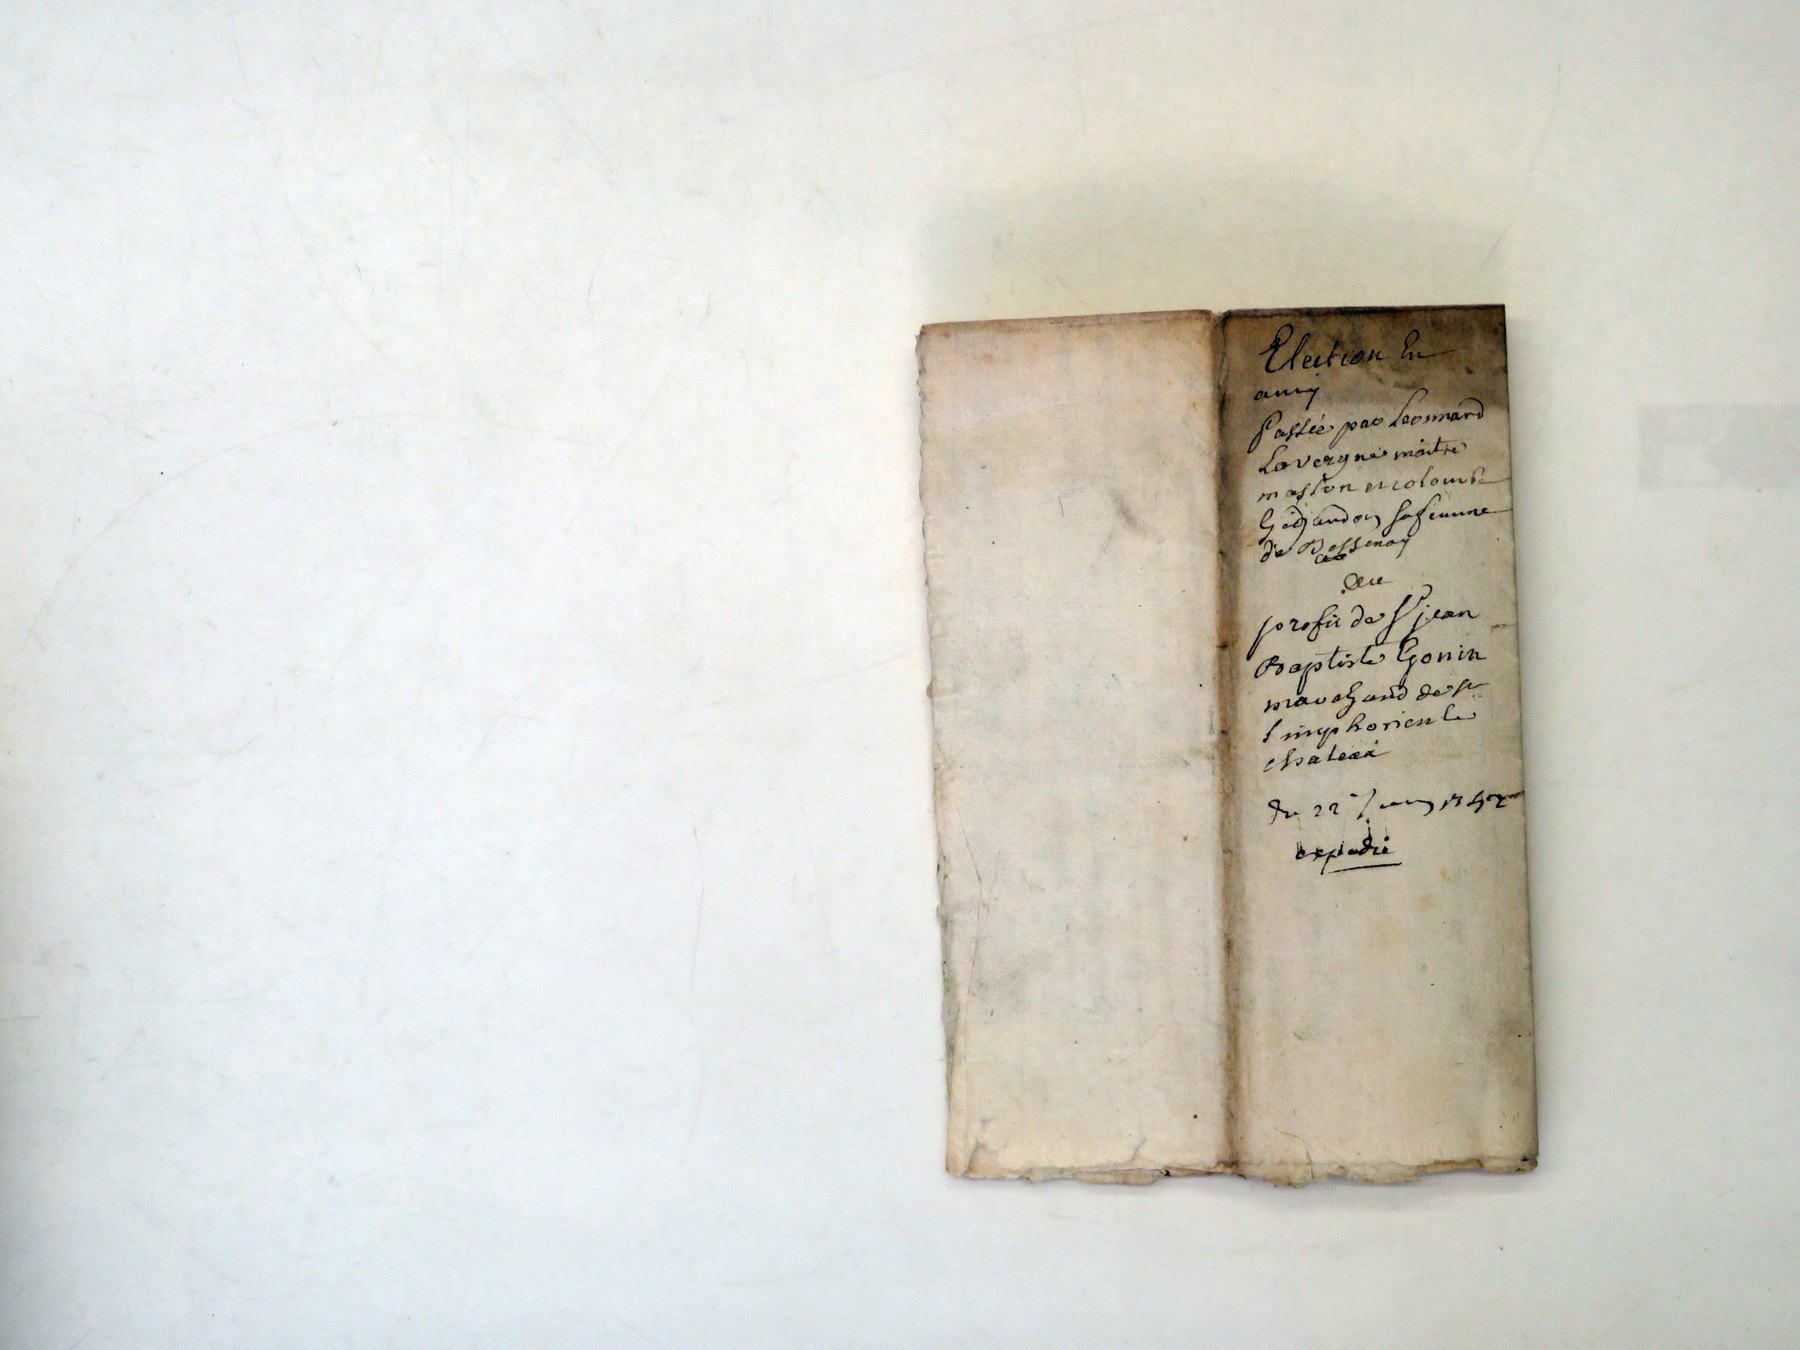 Election En
amy
Passée par Leonnard
Lavergne maitre
masson et colombe
Gigandon sa femme
de Bessenay
au
profit de Sr jean
Baptiste Gonin
marchand de st
Simphorien le
chateau
du 22e 1742
expedié